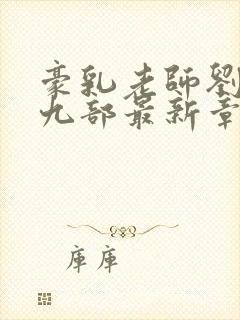 豪乳老師劉
九部最新章
庫庫